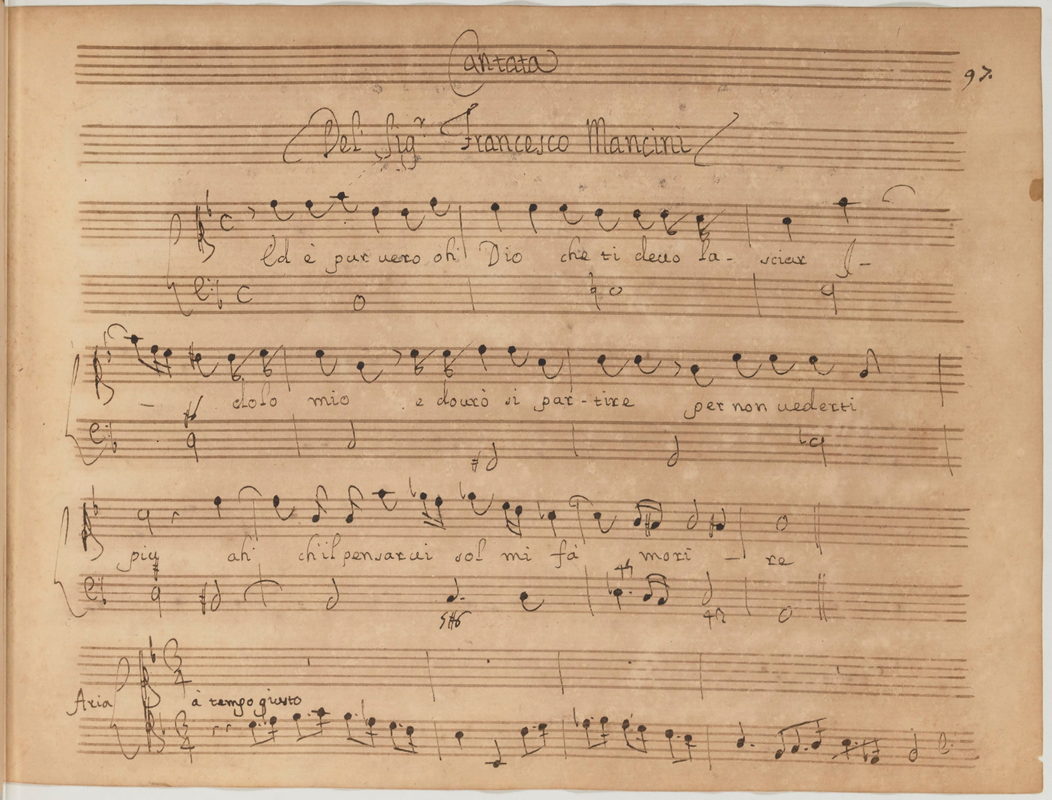 Cantata
97.
Del Sig.r Francesco Mancini
Ed è pur uero oh Dio che ti deuo la- sciar J-
- dolo mio e dourò si par-tire per non uederti
piu ah ch'il pensarui sol mi fà mori - re
Aria
à tempo giusto